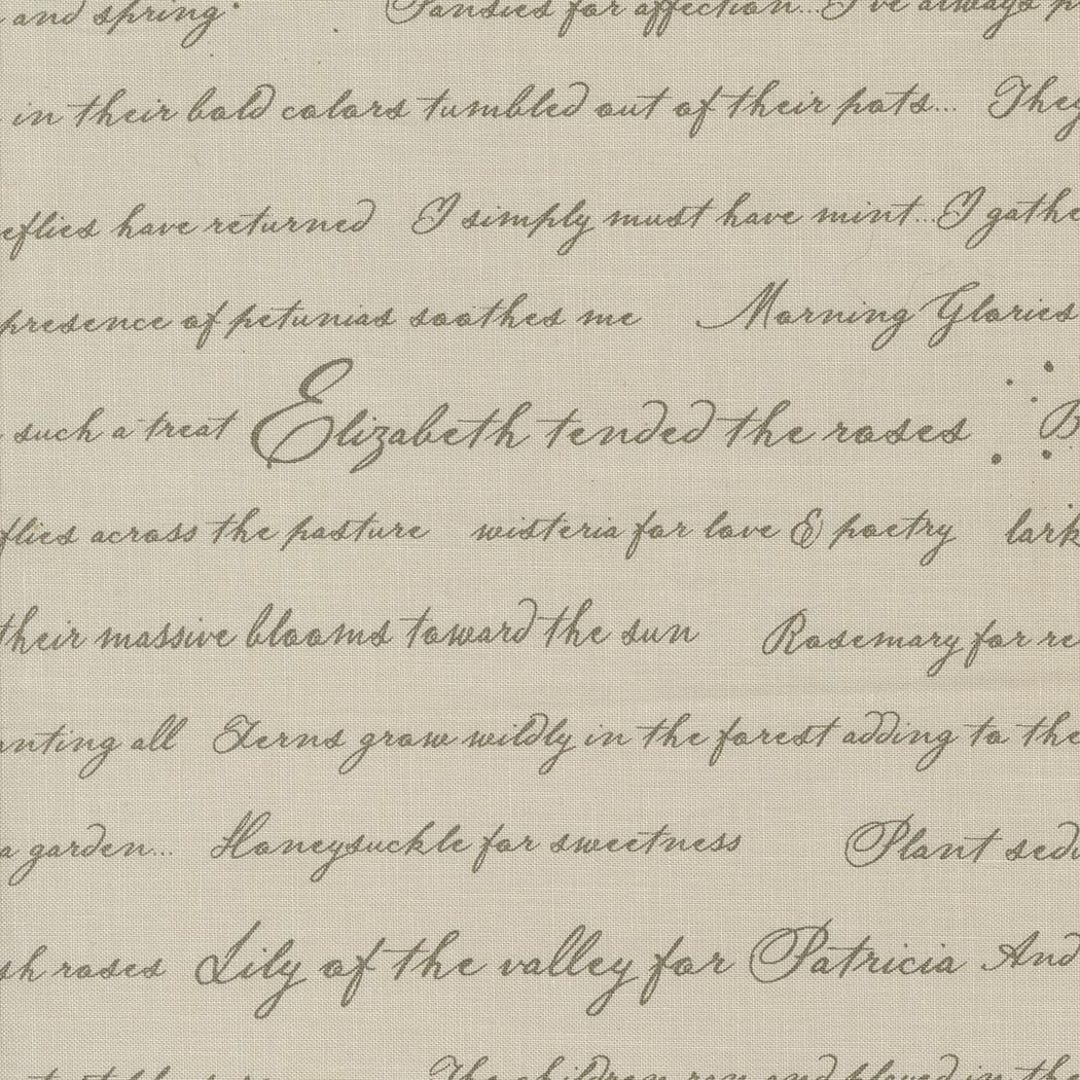 and spring Pansies for affection... I've always
in their bold colors tumbled out of their pots... They
have returned I simply must have mint... I
presence of petunias soothes me Morning Glories
such a treat Elizabeth tended the roses
across the pasture wisteria for love & poetry
their massive blooms toward the sun Rosemary for
all Ferns grow wildly in the forest adding to the
a garden... Honeysuckle for sweetness Plant
roses Lily of the valley for Patricia And
The children ran and played in the